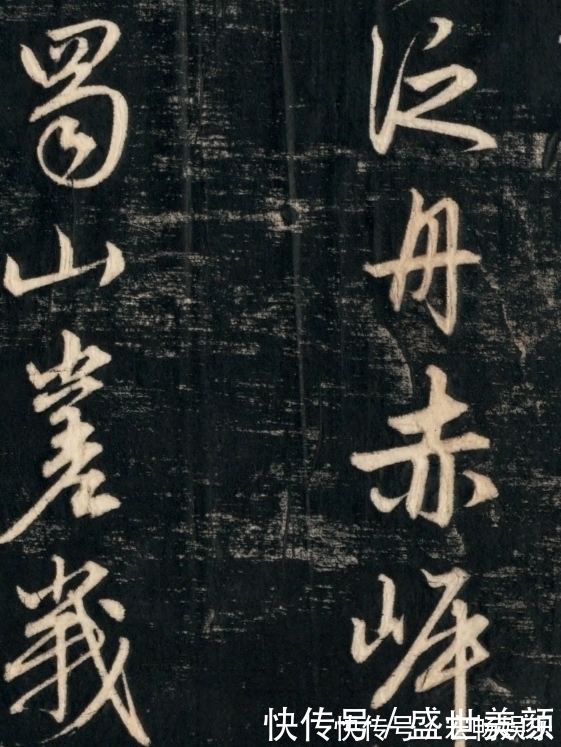 泛舟赤岸
蜀山嵳峩
快传号/盛世美颜